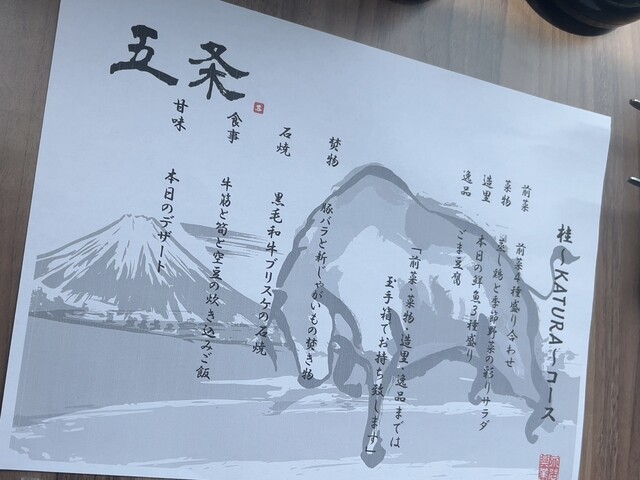 桂～KATURA～コース
前菜 前菜4種盛り合わせ
菜物 蒸し鶏と季節野菜の彩りサラダ
造里 本日の鮮魚3種盛り
逸品 ごま豆腐
「前菜・菜物・造里・逸品までは
玉手箱でお持ち致します」
焚物 豚バラと新じゃがいもの焚き物
石焼 黒毛和牛ブリスケの石焼
食事 牛筋と筍と空豆の炊き込みご飯
甘味 本日のデザート
五条